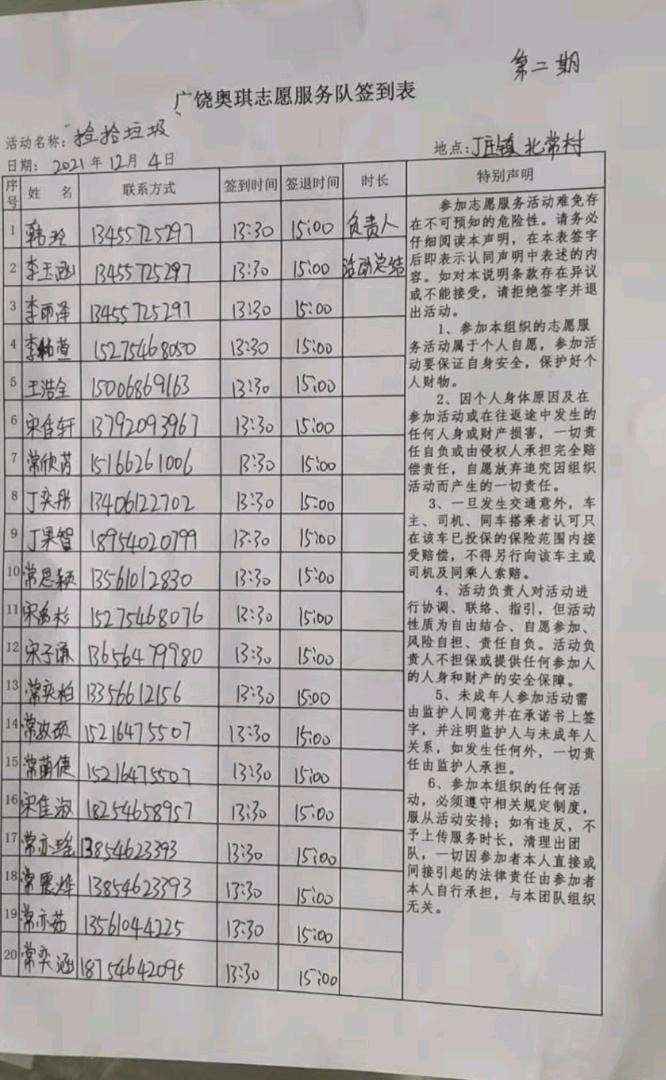 第二期
广饶奥琪志愿服务队签到表
活动名称：捡拾垃圾
地点：丁庄镇北常村
日期：2021年12月4日
序号 姓 名 联系方式 签到时间 签退时间 时长 特别声明
1 韩玲 13455725297 13:30 15:00 负责人
2 李玉涵 13455725297 13:30 15:00 活动总结
3 李雨泽 13455725297 13:30 15:00
4 15275468050 13:30 15:00
5 王浩全 15006869163 13:30 15:00
6 宋佳轩 13792093967 13:30 15:00
7 常欣芮 15166261006 13:30 15:00
8 丁奕彤 13406122702 13:30 15:00
9 丁果智 18954020799 13:30 15:00
10 常恩颖 13561012830 13:30 15:00
11 15275468076 13:30 15:00
12 宋子谦 13656479980 13:30 15:00
13 常奕柏 13356612156 13:30 15:00
14 15216475507 13:30 15:00
15 15216475507 13:30 15:00
16 宋佳淑 18254658957 13:30 15:00
17 常亦瑶 13854623393 13:30 15:00
18 13854623393 13:30 15:00
19 常亦茹 13561044225 13:30 15:00
20 常奕涵 18754642095 13:30 15:00
参加志愿服务活动难免存
在不可预知的危险性。请务必
仔细阅读本声明，在本表签字
后即表示认同声明中表述的内
容。如对本说明条款存在异议
或不能接受，请拒绝签字并退
出活动。
1、参加本组织的志愿服
务活动属于个人自愿，参加活
动要保证自身安全，保护好个
人财物。
2、因个人身体原因及在
参加活动或在往返途中发生的
任何人身或财产损害，一切责
任自负或由侵权人承担完全赔
偿责任，自愿放弃追究因组织
活动而产生的一切责任。
3、一旦发生交通意外，车
主、司机、同车搭乘者认可只
在该车已投保的保险范围内接
受赔偿，不得另行向该车主或
司机及同乘人索赔。
4、活动负责人对活动进
行协调、联络、指引，但活动
性质为自由结合、自愿参加、
风险自担、责任自负。活动负
责人不担保或提供任何参加人
的人身和财产的安全保障。
5、未成年人参加活动需
由监护人同意并在承诺书上签
字，并注明监护人与未成年人
关系，如发生任何外，一切责
任由监护人承担。
6、参加本组织的任何活
动，必须遵守相关规定制度，
服从活动安排；如有违反，不
予上传服务时长，清理出团
队，一切因参加者本人直接或
间接引起的法律责任由参加者
本人自行承担，与本团队组织
无关。